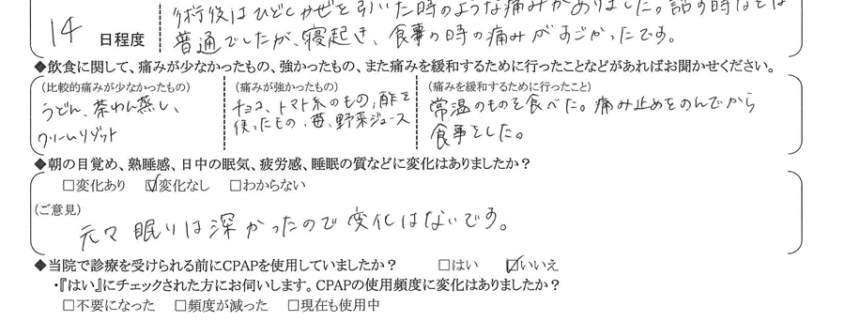 術後はひどいかぜを引いた時のような痛みがありました。話す時などは
14 日程度 普通でしたが、寝起き、食事の時の痛みがすごかったです。
◆飲食に関して、痛みが少なかったもの、強かったもの、また痛みを緩和するために行ったことなどがあればお聞かせください。
(比較的痛みが少なかったもの) (痛みが強かったもの) (痛みを緩和するために行ったこと)
うどん、茶わん蒸し、 チョコ、トマト系のもの、酢を 常温のものを食べた。痛み止めをのんでから
クリームリゾット 使ったもの、苺、野菜ジュース 食事をした。
◆朝の目覚め、熟睡感、日中の眠気、疲労感、睡眠の質などに変化はありましたか?
□変化あり ☑変化なし □わからない
(ご意見)
元々眠りは深かったので変化はないです。
◆当院で診療を受けられる前にCPAPを使用していましたか? □はい ☑いいえ
・『はい』にチェックされた方にお伺いします。CPAPの使用頻度に変化はありましたか?
□不要になった □頻度が減った □現在も使用中